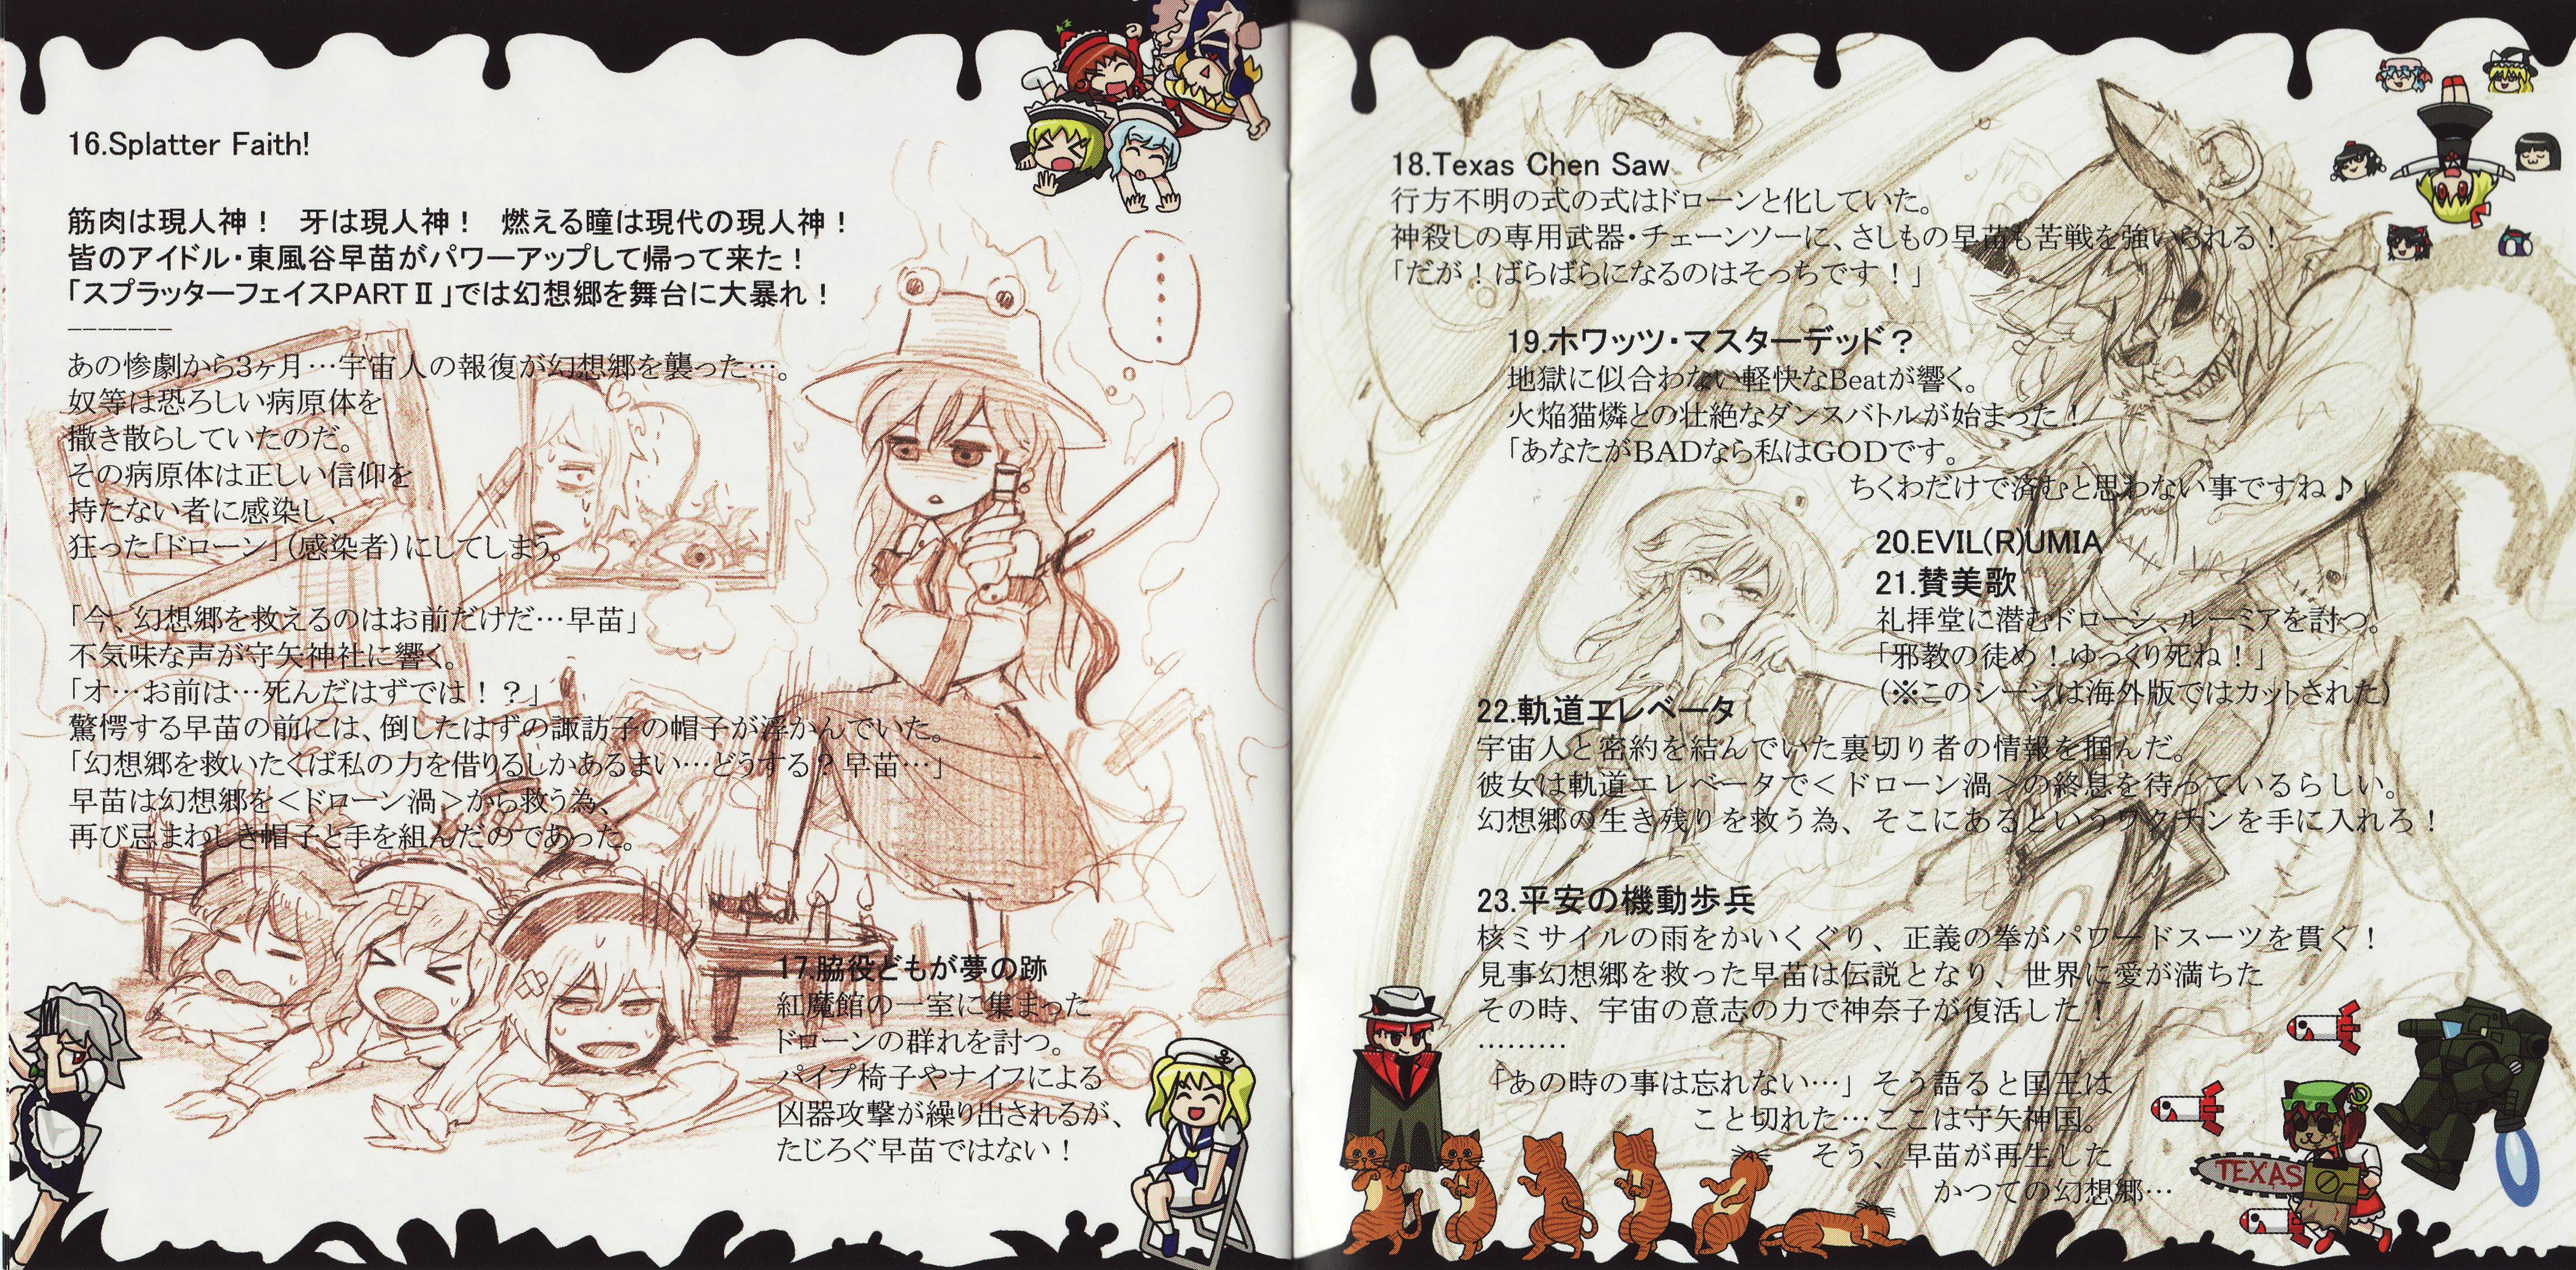 16.Splatter Faith!
筋肉は現人神！　牙は現人神！　燃える瞳は現代の現人神！
皆のアイドル・東風谷早苗がパワーアップして帰って来た！
「スプラッターフェイスPARTⅡ」では幻想郷を舞台に大暴れ！
-------
あの惨劇から3ヶ月…宇宙人の報復が幻想郷を襲った…。
奴等は恐ろしい病原体を
撒き散らしていたのだ。
その病原体は正しい信仰を
持たない者に感染し、
狂った「ドローン」（感染者）にしてしまう。
「今、幻想郷を救えるのはお前だけだ…早苗」
不気味な声が守矢神社に響く。
「オ…お前は…死んだはずでは！？」
驚愕する早苗の前には、倒したはずの諏訪子の帽子が浮かんでいた。
「幻想郷を救いたくば私の力を借りるしかあるまい…どうする？早苗…」
早苗は幻想郷を＜ドローン渦＞から救う為、
再び忌まわしき帽子と手を組んだのであった。
17.脇役どもが夢の跡
紅魔館の一室に集まった
ドローンの群れを討つ。
パイプ椅子やナイフによる
凶器攻撃が繰り出されるが、
たじろぐ早苗ではない！
18.Texas Chen Saw
行方不明の式の式はドローンと化していた。
神殺しの専用武器・チェーンソーに、さしもの早苗も苦戦を強いられる！
「だが！ばらばらになるのはそっちです！」
19.ホワッツ・マスターデッド？
地獄に似合わない軽快なBeatが響く。
火焔猫燐との壮絶なダンスバトルが始まった！
「あなたがBADなら私はGODです。
ちくわだけで済むと思わない事ですね♪」
20.EVIL(R)UMIA
21.賛美歌
礼拝堂に潜むドローン、ルーミアを討つ。
「邪教の徒め！ゆっくり死ね！」
（※このシーンは海外版ではカットされた）
22.軌道エレベータ
宇宙人と密約を結んでいた裏切り者の情報を掴んだ。
彼女は軌道エレベータで＜ドローン渦＞の終息を待っているらしい。
幻想郷の生き残りを救う為、そこにあるというワクチンを手に入れろ！
23.平安の機動歩兵
核ミサイルの雨をかいくぐり、正義の拳がパワードスーツを貫く！
見事幻想郷を救った早苗は伝説となり、世界に愛が満ちた
その時、宇宙の意志の力で神奈子が復活した！
………
「あの時の事は忘れない…」そう語ると国王は
こと切れた…ここは守矢神国。
そう、早苗が再生した
かつての幻想郷…
TEXAS